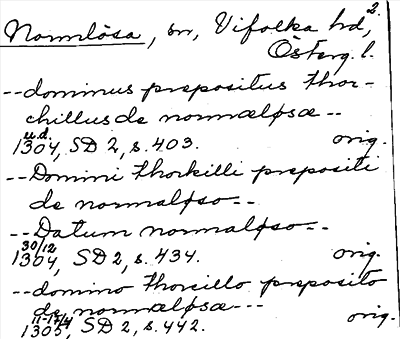 2.
Normlösa, sn, Vifolka hd,
Österg. l.
--dominus prepositus thor-
chillus de normæløsæ--
u.d.
1304, SD 2, s. 403. orig.
--Domini thorkilli prepositi
de normaløso--
--Datum normaløso--
30/12
1304, SD 2, s. 434. orig.
--domino thorcillo preposito
de normæløsæ---
11-17/4
1305, SD 2, s. 442. orig.